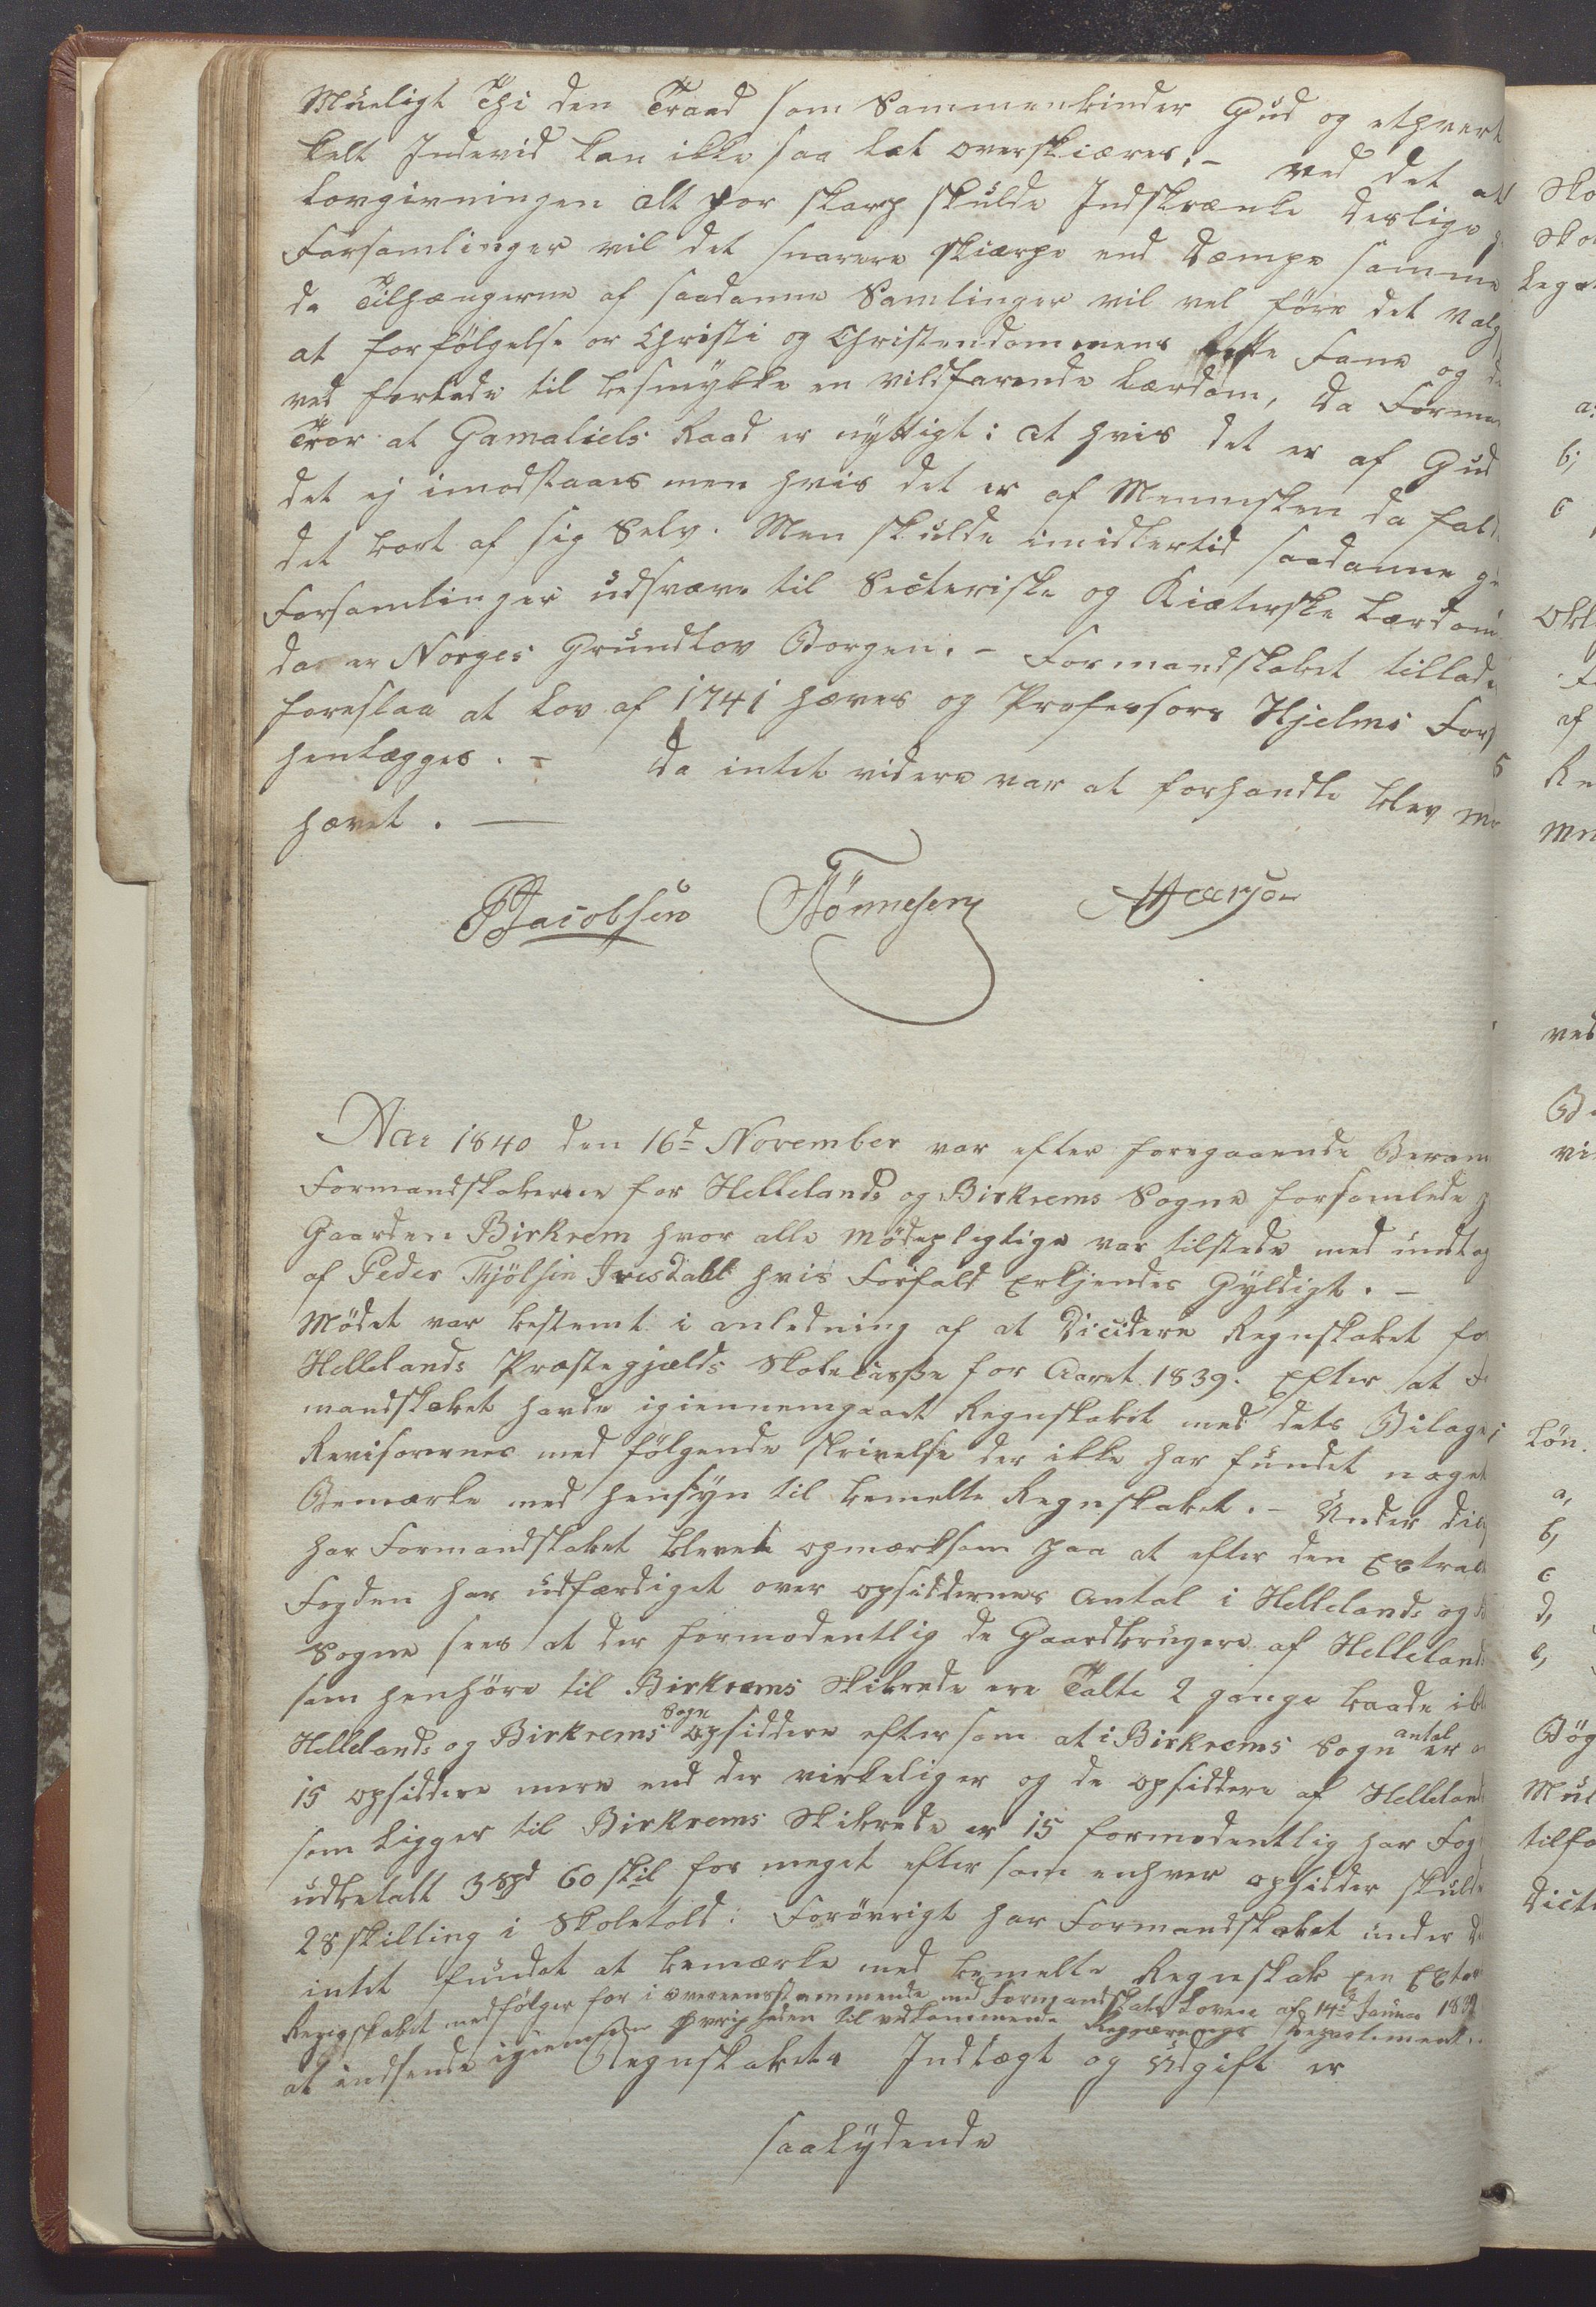 Mueligt Thi den Traad som Sammenbinder Gud og ethvert
kelt Indevid kan ikke saa let overskiæres; - ved det at
Lovgivningen alt for skarp skulde Indskrænke derlige g
Forsamlinger vil det snarere skiærpe end dæmpe samme
da Tilhængerne af saadanne Samlinger vil vel føre det Valg
at forfølgelse er Christi og Christendommens Fane og de
ved forlede til besmykke en vildfarende Lærdom, da Forman
Troe at Gamaliels Raad er nyttigt: at hvis det er af Gud
det ej imodstaaes men hvis det er af Mennesken da fald
det bort af sig Selv. Men skulde imidlertid saadanne g
Forsamlinger udsvære til Secteriske og Kiæterske Lærdom
da er Norges Grundlov Borgen. - Formandskabet tillade
foreslaa at Lov af 1741 hæves og Professors Hjelms Fors
henlægges. - Da intet videre var at forhandle blev Mø
hævet. -
Jacobsen Tønnesen
Aar 1840 den 16d November var efter foregaaende Beram
Formandskaberne for Hellelands og Birkrems Sogne forsamlede p
Gaarden Birkrem hvor alle Mødepligtige var tilstede med undtag
af Peder Thjølsen Ivesdall hvis Forfald Erkjendes Gyldigt. -
Mødet var bestemt i anledning af at Dicidere Regnskabet fo
Hellelands Præstegjælds Skolecasse for Aaret 1839. Efter at F
mandskabet havde igiennemgaaet Regnskabet med dets Bilager
Revisorernes med følgende skrivelse der ikke har fundet noget
Bemærke med hensyn til bemelte Regnskabet. - Under dic
har Formandskabet blevet opmærksom paa at efter den Extract
Fogden har udfærdiget over opsiddernes Antal i Hellelands og B
Sogne sees at der formodentlig de Gaardbrugere af Hellelands
som henhøre til Birkrems Skibrede ere Talte 2 gange baade ibl
Hellelands og Birkrems Sogn opsiddere eftersom at i Birkrems Sogn antal er a
15 opsiddere mere end der virkelig er og de opsiddere af Helleland
som ligger til Birkrems Skibrede er 15 formodentlig har Fog
udbetalt 3 Spd 60 skil for meget efter som enhver opsidder skulde
28 skilling i Skoletold: Forøvrigt har Formandskabet under D
intet fundet at bemærke med bemelte Regnskab een Extra
Regnskabet medfølger for i overeensstemmende med Formandskabs Loven af 14d Januar 1837
at indsende igiennem Øvrigheden til vedkommende Regjærings Departement.
Regnskabets Indtægt og Udgift er
saalydende